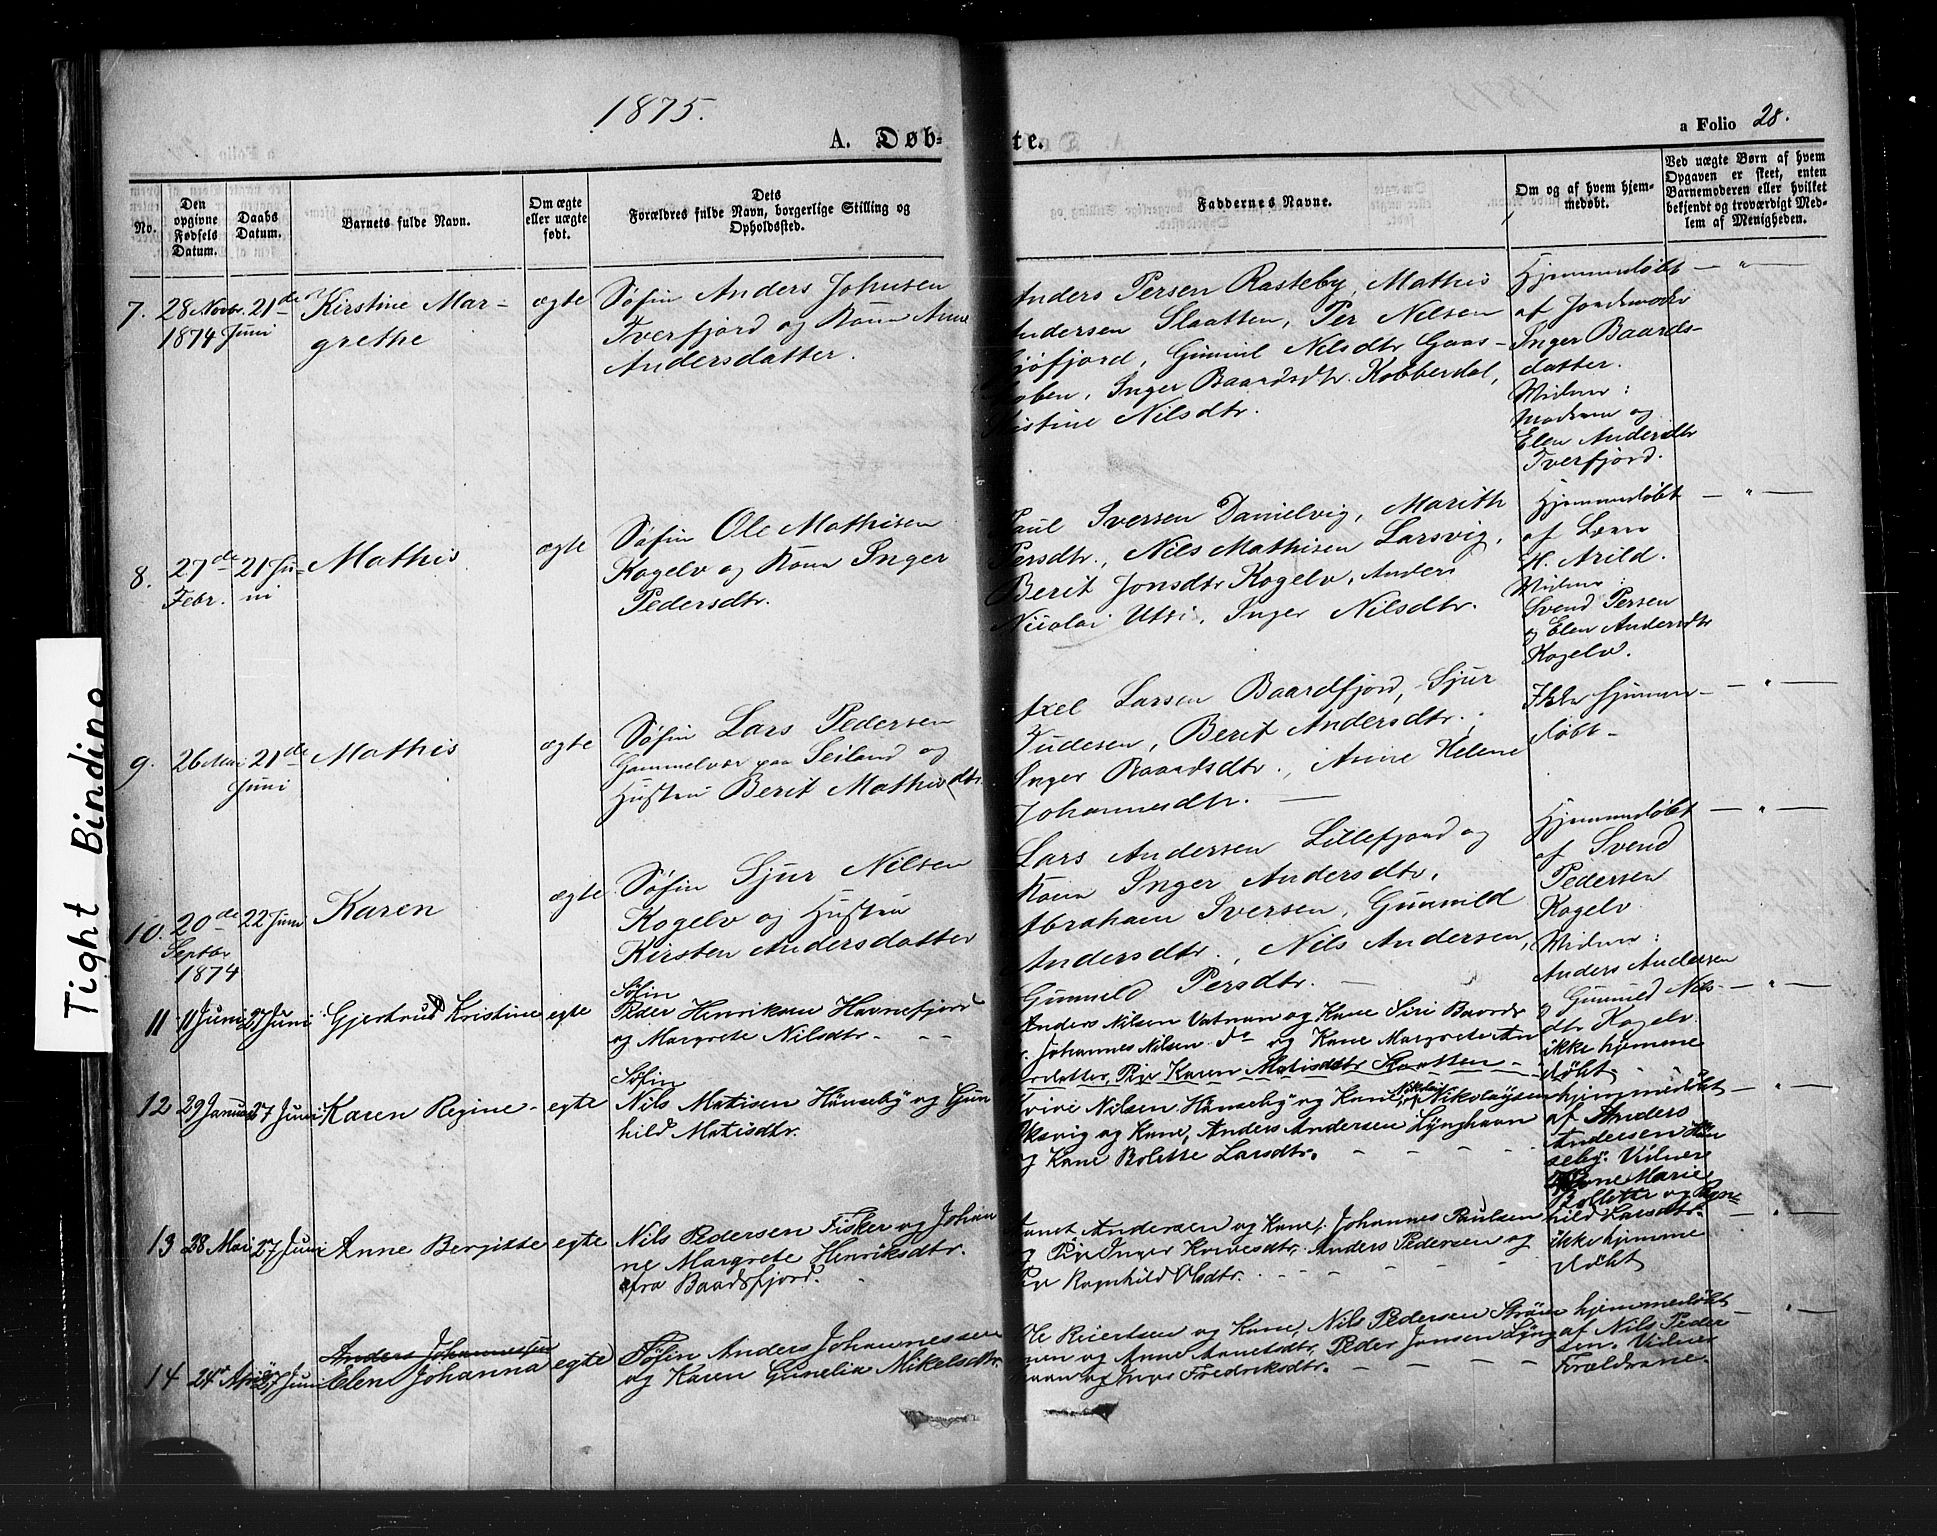 1875.
A. Døb-
te.
a Folio 28.
No.
Den opgivne Fødsels Datum.
Daabs Datum.
Barnets fulde Navn.
Om ægte eller uægte født.
Dets Forældres fulde Navn, borgerlige Stilling og Opholdssted.
Faddernes Navne.
Om og af hvem hjemmedøbt.
Ved uægte Børn af hvem Opgaven er skeet, enten Barnemoderen eller hvilket bekjendt og troværdigt Medlem af Menigheden.
7.
28 Novbr.
1874
21de
Juni
Kirstine Mar-
grethe
ægte
Søfin Anders Johnsen
Tverfjord og Kone Anne
Andersdatter.
Anders Persen Rasteby, Mathis
Andersen Slaatten, Per Nilsen
fjord, Gunnil Nilsdtr Gaas-
Inger Baardsdtr. Kobberdal,
Nilsdtr.
Hjemmedøbt
af Jordmoder
Inger Baards-
datter.
Vidner:
Moderen og
Elen Andersdtr
Tverfjord.
— " —
8.
27de
Febr.
21 Ju-
ni
Mathis
ægte
Søfin Ole Mathisen
Kogelv og Kone Inger
Pedersdtr.
Paul Iversen Danielvig, Marith
Persdtr., Nils Mathisen Larsvig,
Berit Jonsdtr Kogelv, Anders
Nicolai Utsi, Inger Nilsdtr.
Hjemmedøbt
af Lærer
H. Arild.
Vidner:
Svend Persen
og Elen Andersdtr
Kogelv.
— " —
9.
26 Mai
21de
Juni
Mathis
ægte
Søfin Lars Pedersen
Gammelvær paa Seiland og
Hustru Berit Mathisdtr.
Axel Larsen Baardfjord, Sjur
Tudesen, Berit Andersdtr.,
Inger Baardsdtr., Anne Helene
Johannesdtr. —
Ikke hjemme-
døbt —
— " —
10.
20de
Septbr
1874
22 Juni
Karen
ægte
Søfin Sjur Nilsen
Kogelv og Hustru
Kirsten Andersdatter
Lars Andersen Lillefjord og
Kone Inger Andersdtr,
Abraham Iversen, Gunnild
Andersdtr., Nils Andersen,
Gunnild Persdtr. —
Hjemmedøbt
af Svend
Pedersen
Kogelv.
Vidner:
Anders Andersen
og Gunnild Nils-
dtr Kogelv.
— " —
11
11 Juni
27 Juni
Gjertrud Kristine
egte
Søfin
Peder Henriksen Havnefjord
og Margrete Nilsdtr. - - -
Anders Nilsen Vatnan og Kone Siri Baardr
Johannes Nilsen do og Kone Margrete An
datter, Pige Karen Matisdtr Slaatten -
ikke hjemme
døbt.
— " —
12
29 Januar
27 Juni
Karen Regine -
egte
Søfin
Nils Matisen Hönseby og Gun
hild Matisdtr.
Nilsen Hönseby og Kone, Nikolaysen
og Kone, Anders Andersen Lynghavn
og Kone Bolette Larsdtr. - - - -
hjemmedøbt
af Anders
Andersen Hön
seby. Vidner
Anne Marie
Bollette og Ragn-
hild Larsdtr.
— " —
13
28 Mai
27 Juni
Anne Bergitte
egte
Nils Pedersen Fisker og Johan
ne Margrete Henriksdtr.
fra Baadsfjord.
Andersen og Kone, Johannes Paulsen
og Pige Inger Kvivesdtr, Anders Pedersen og
Pige Ragnhild Olsdtr. - - - - -
ikke hjemme
døbt
— " —
14
24 April
27 Juni
Anders Johannessen
Elen Johanna
egte
Søfin Anders Johannessen
og Karen Gunelia Mikelsdtr.
Ole Reiertsen og Kone, Nils Pedersen Ström
men og Anne Arnetsdtr, Peder Jonsen Lyng
havn og Inger Fredriksdtr. - - - -
hjemmedøbt
af Nils Peder
sen. Vidner
Forældrene.
— " —
Tight Binding